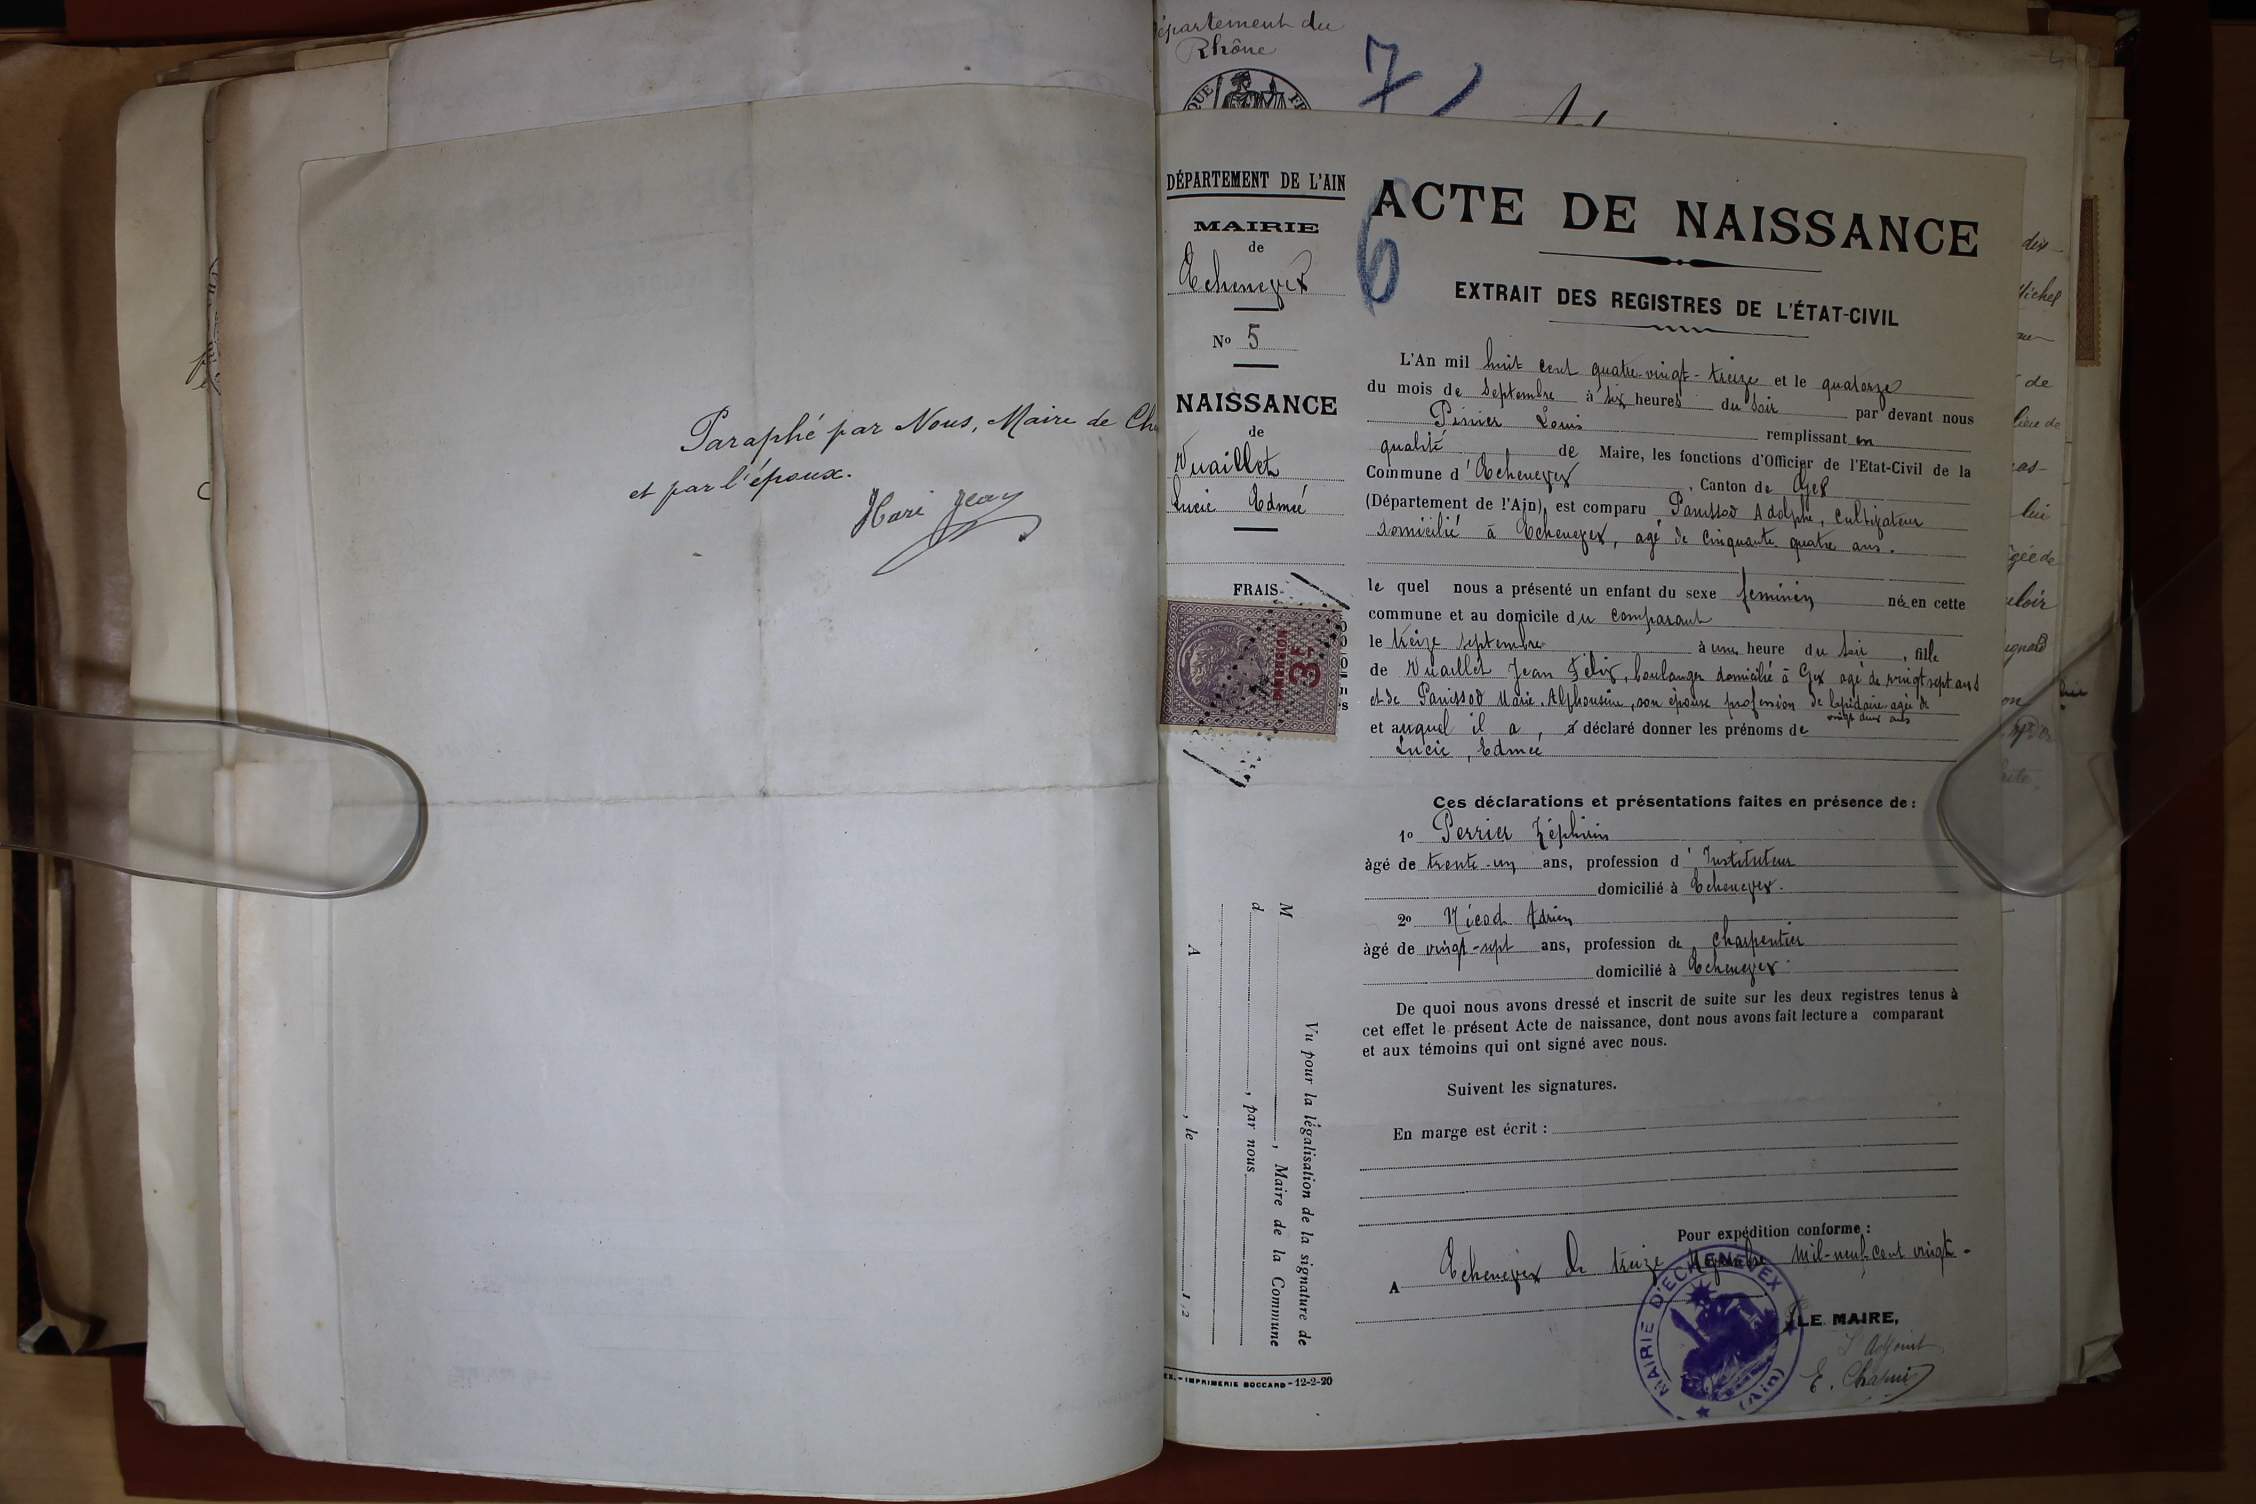 Paraphé par Nous, Maire de Ch
et par l'époux.
Hari Jean
épartement du
Rhône
7
DÉPARTEMENT DE L'AIN
MAIRIE
de
Echenevex
No 5
NAISSANCE
de
Vuaillet
Lucie Edmée
FRAIS
3F
M
d , par nous , Maire de la Commune
A , le 192
Vu pour la légalisation de la signature de
IMPRIMERIE BOCCARD - 12-2-20
6
ACTE DE NAISSANCE
EXTRAIT DES REGISTRES DE L'ÉTAT-CIVIL
L'An mil huit cent quatre-vingt-treize et le quatorze
du mois de Septembre à six heures du soir par devant nous
Louis remplissant en
qualité de Maire, les fonctions d'Officier de l'Etat-Civil de la
Commune d'Echenevex , Canton de Gex
(Département de l'Ain), est comparu Panissod Adolphe, Cultivateur
domicilié à Echenevex, agé de Cinquante quatre ans.
le quel nous a présenté un enfant du sexe feminin née en cette
commune et au domicile du comparant
le treize septembre à une heure du soir , fille
de Vuaillet Jean Félix, boulanger domicilié à Gex agé de vingt sept ans
et de Panissod Marie-Alphonsine, son épouse profession de lapidaire agée de
vingt deux ans
et auquel il a , déclaré donner les prénoms de
Lucie, Edmée
Ces déclarations et présentations faites en présence de :
1o Perrier Zéphirin
âgé de trente-un ans, profession d'Instituteur
domicilié à Echenevex.
2o Nicod Adrien
âgé de vingt-sept ans, profession de charpentier
domicilié à Echenevex.
De quoi nous avons dressé et inscrit de suite sur les deux registres tenus à
cet effet le présent Acte de naissance, dont nous avons fait lecture a comparant
et aux témoins qui ont signé avec nous.
Suivent les signatures.
En marge est écrit :
Pour expédition conforme :
A Echenevex le treize mil-neuf-cent vingt-
MAIRIE D'ECHENEVEX
(Ain)
LE MAIRE,
L'Adjoint
E.